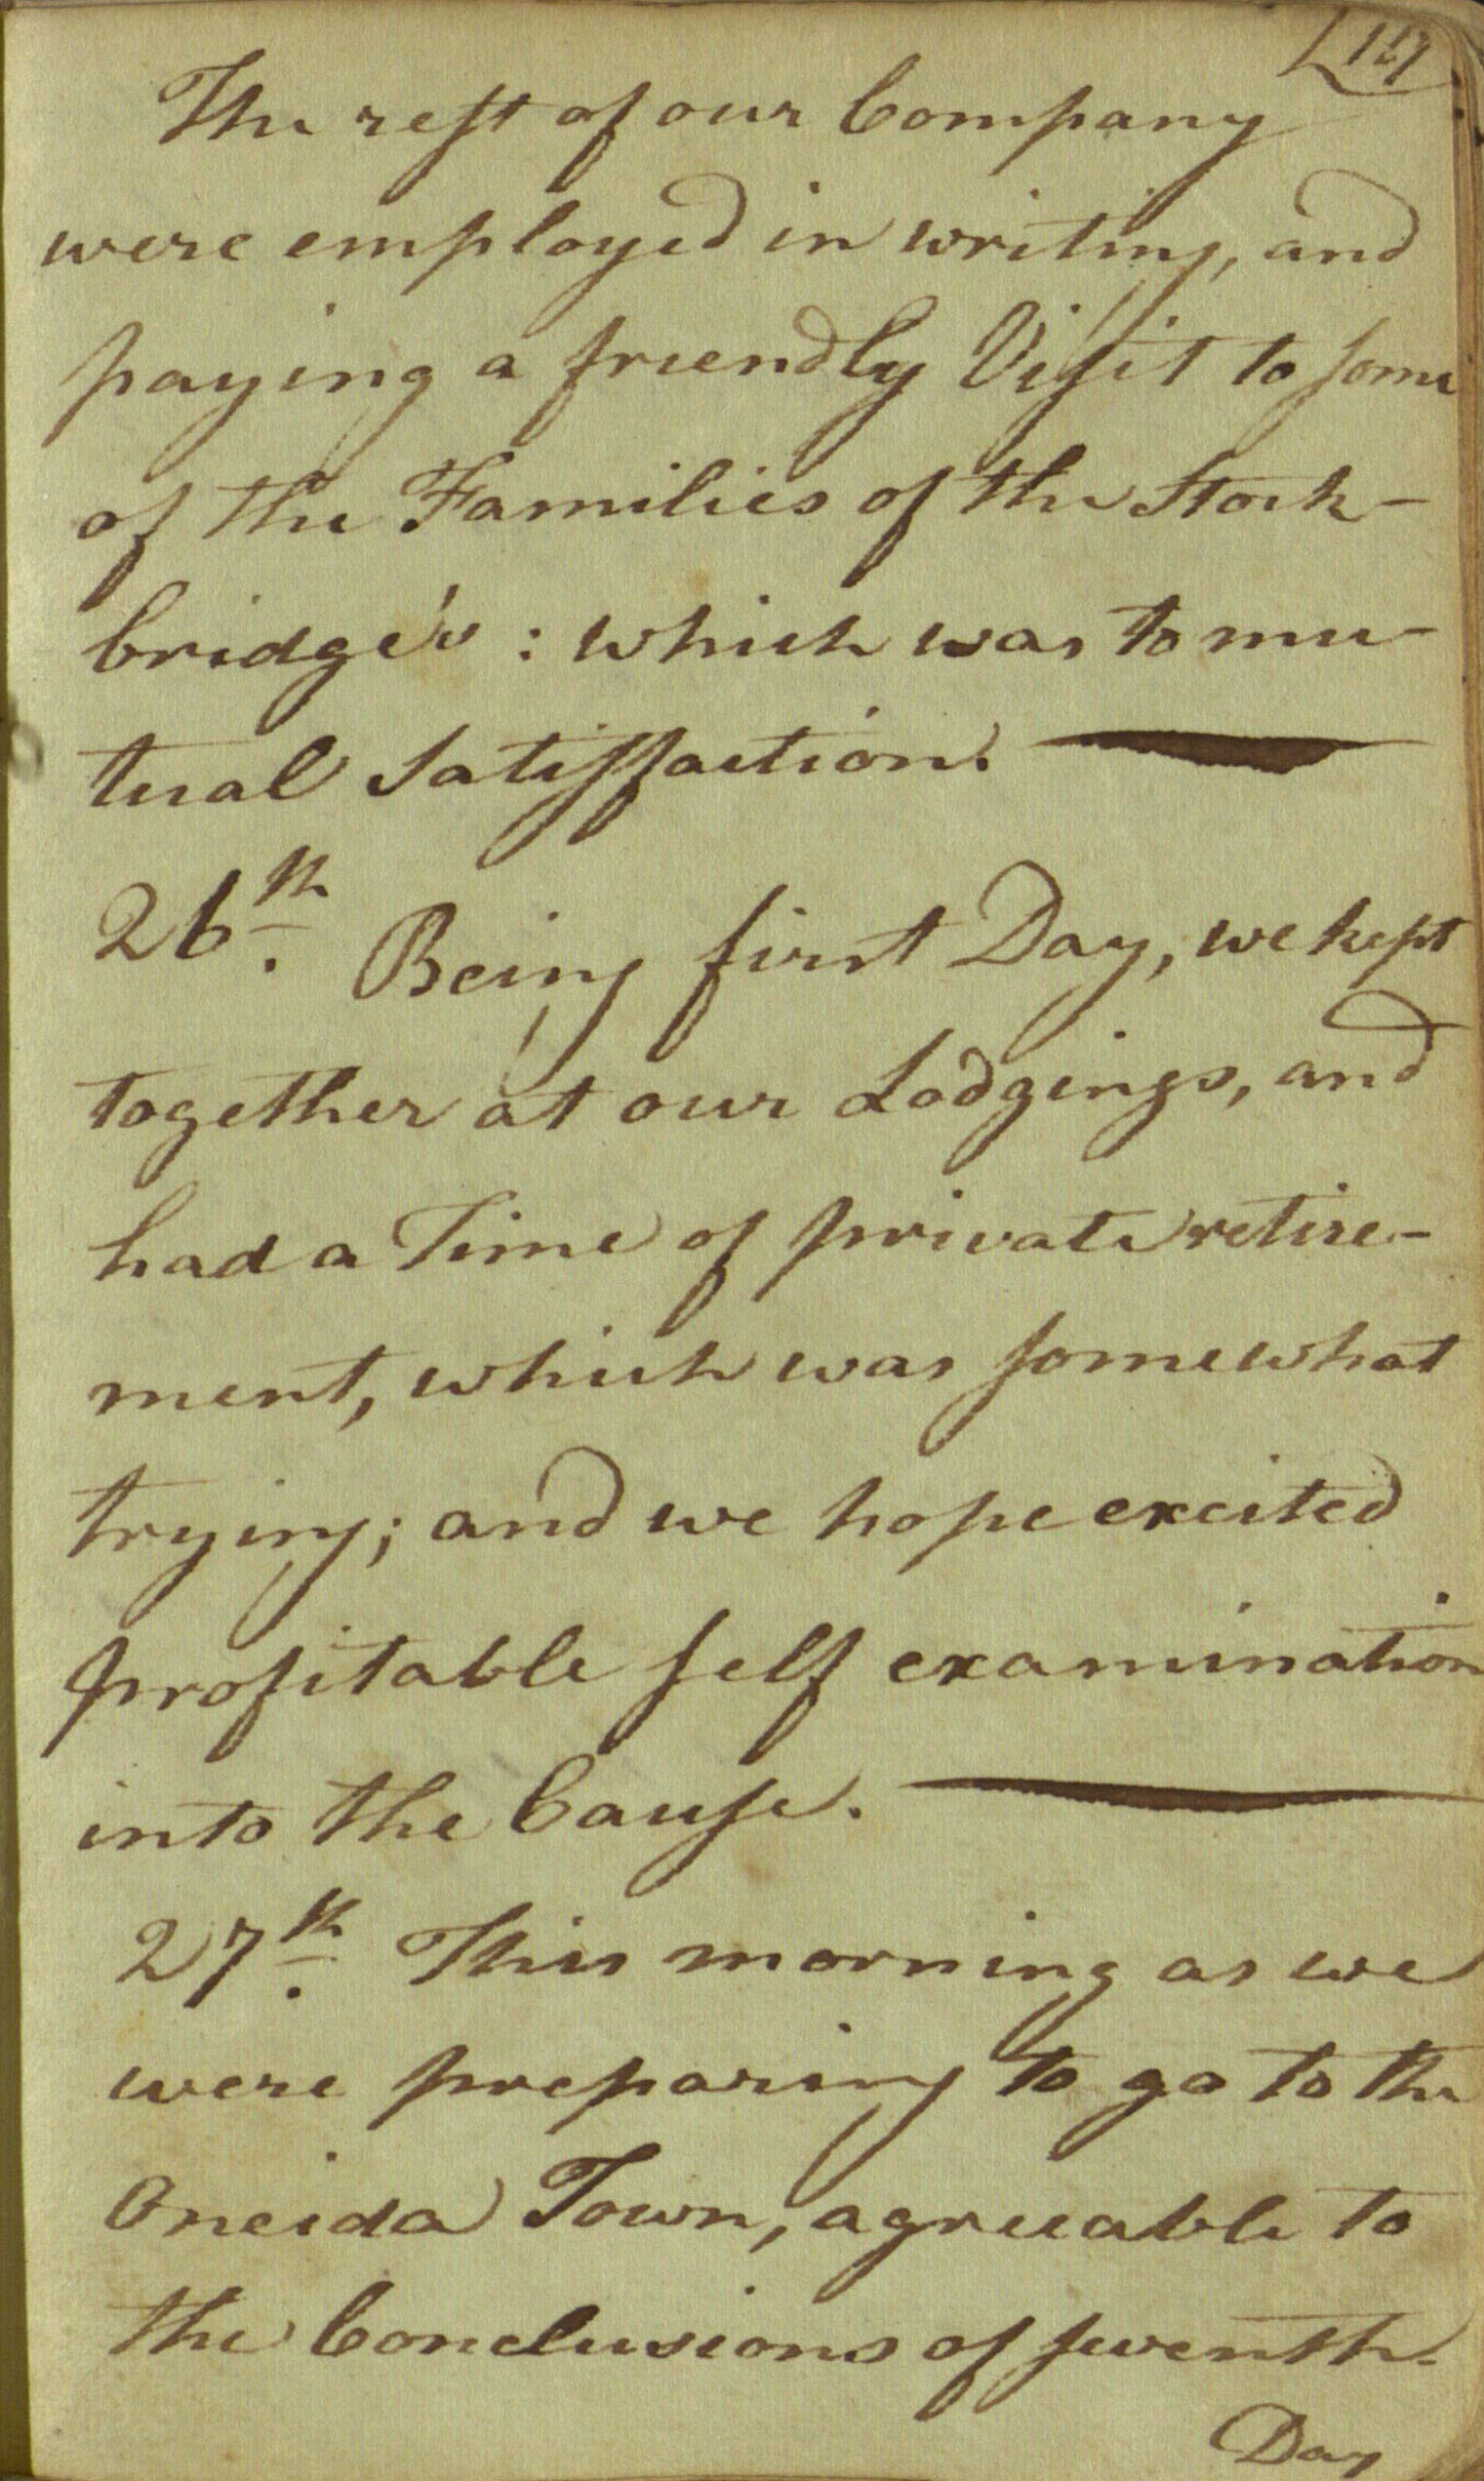 The rest of our Company
were employed in writing, and
paying a friendly Visit to some
of the Families of the Stock-
bridge's: which was to mu-
tual Satisfaction.
26th. Being first Day, we kept
together at our Lodgings, and
had a Time of private retire-
ment, which was somewhat
trying; and we hope excited
profitable self examination
into the Cause.
27th. This morning as we
were preparing to go to the
Oneida Town, agreeable to
the Conclusions of seventh-
Day